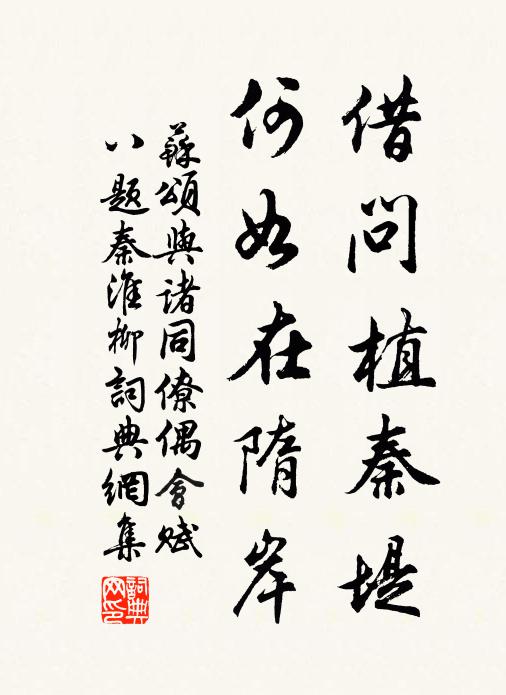 借问植秦堤
何如在隋岸
蘇頌與諸同僚偶會賦
八题秦淮柳詞典網集
詞典
网印